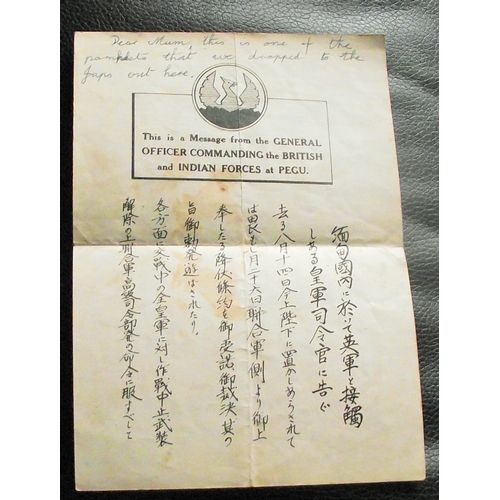 Dear Mum, this is one of the
pamphlets that we dropped to the
Japs out here.
This is a Message from the GENERAL
OFFICER COMMANDING the BRITISH
and INDIAN FORCES at PEGU.
緬甸國内に於いて英軍と接觸
しある皇軍司令官に告ぐ
去る八月十四日今上陛下に置かしめらされて
は畏くも七月二十六日聯合軍側より御上
奉したる降伏條約を御受諾御裁決其の
旨御勅発遊ばされたり。
各方面に交戦中の全皇軍に対し作戦中止武装
解除の上聯合軍高級司令部発の命令に服すべして